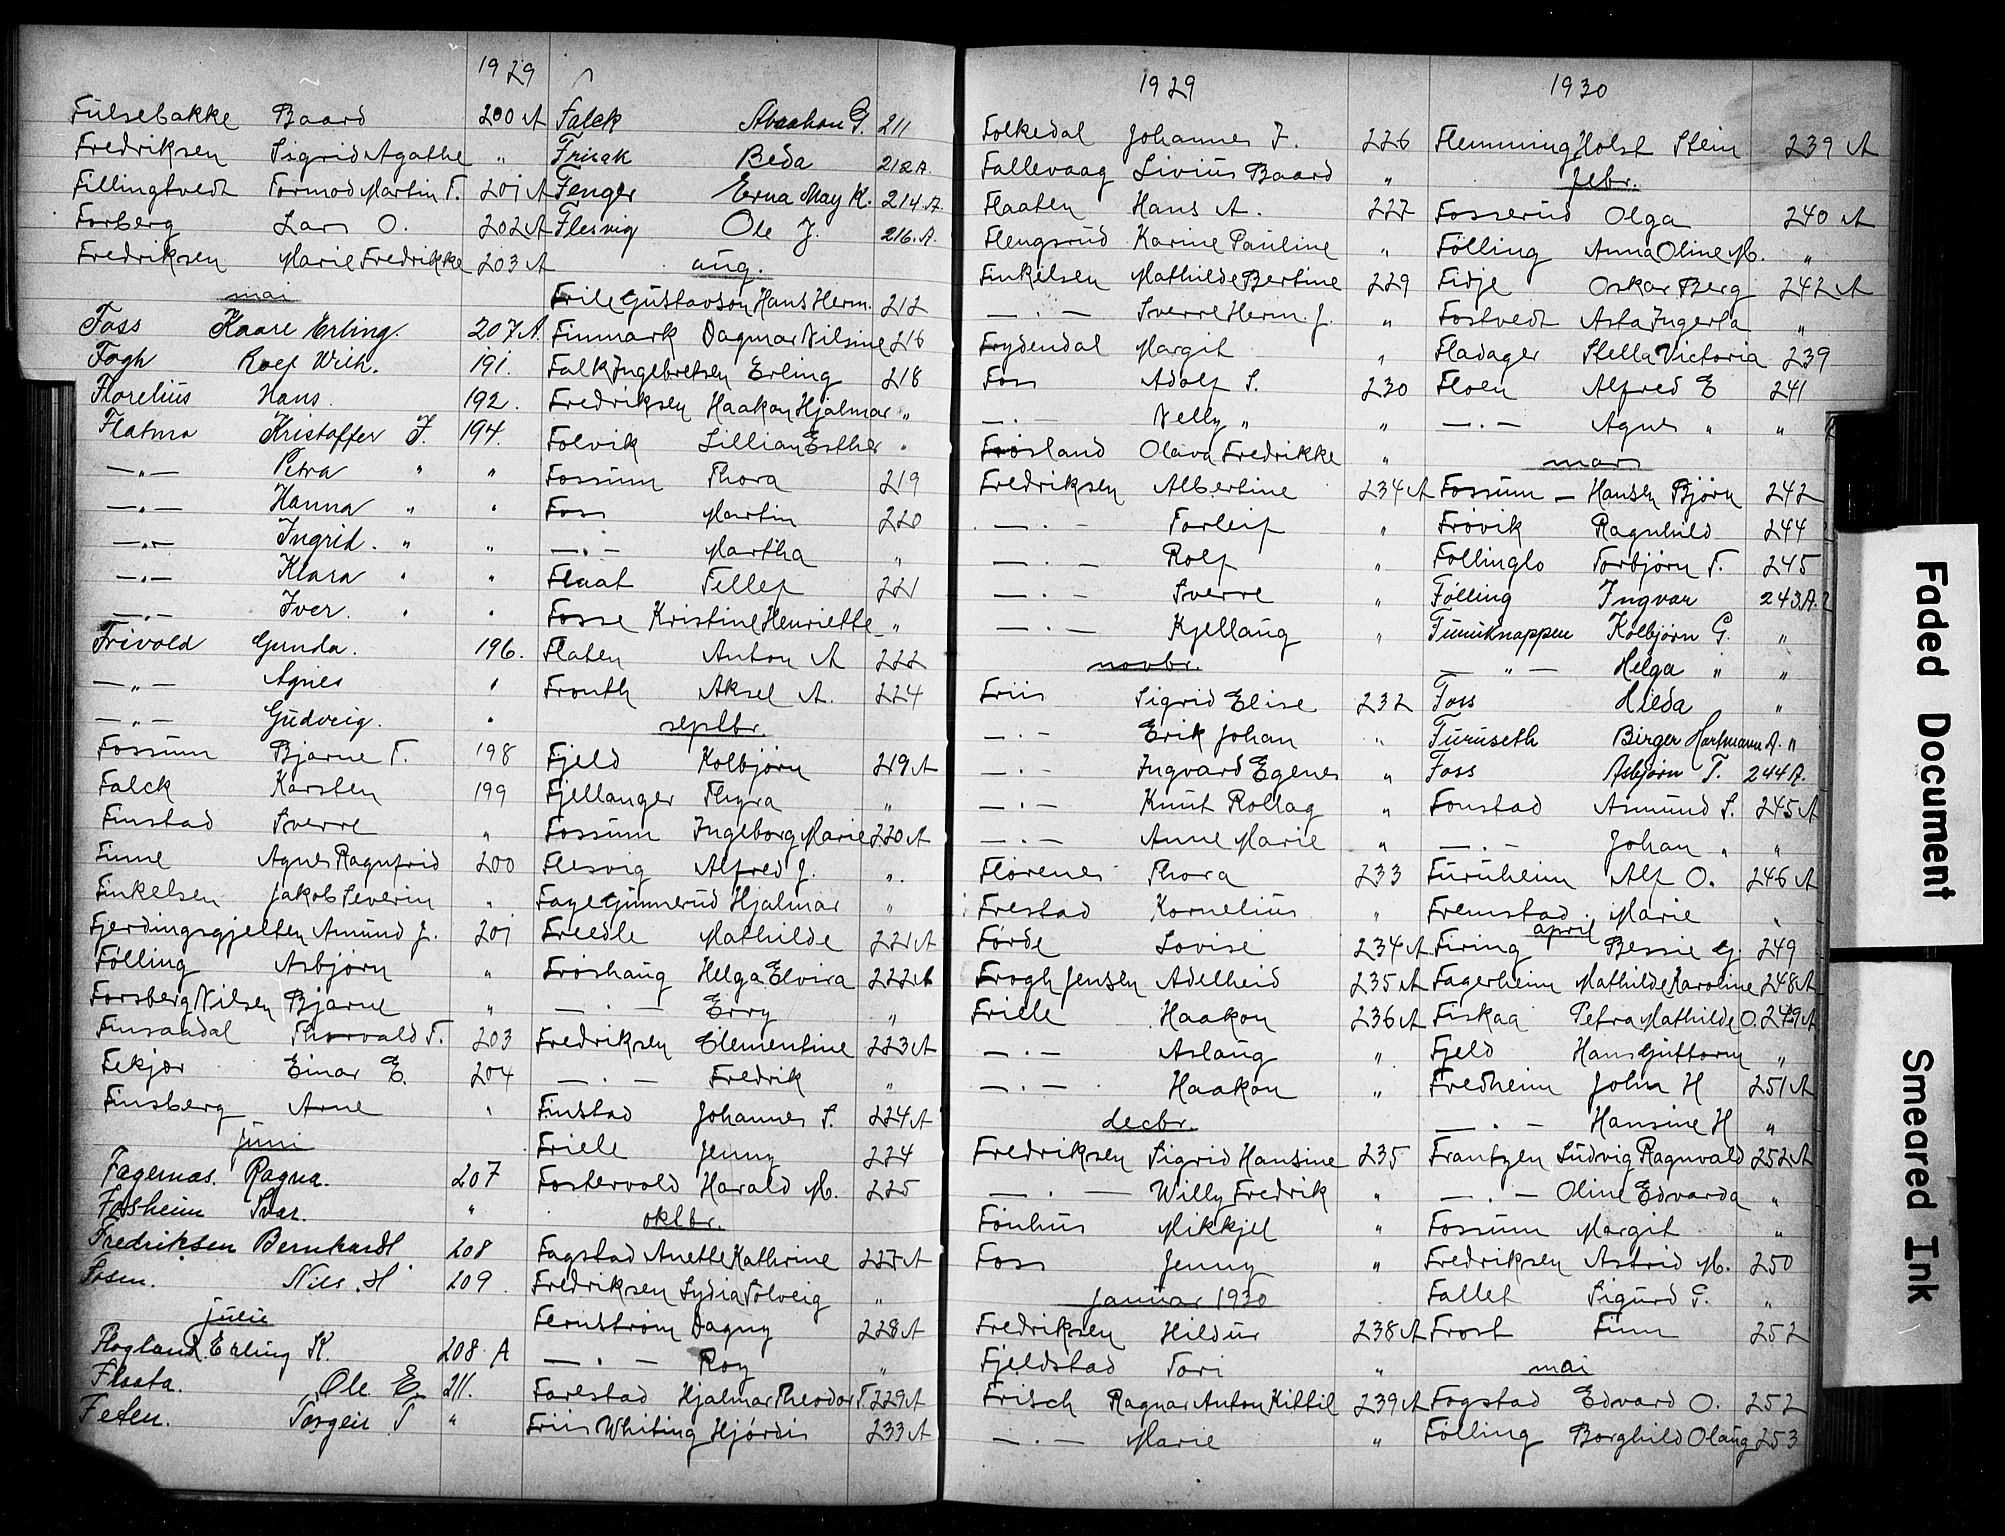 1929
Fulsebakke Baard 200 A
Fredriksen Sigrid Agathe "
Fillingtvedt Tormod Martin T. 201 A
Forberg Lars O. 202 A
Fredriksen Marie Fredrikke 203 A
mai
Foss Kaare Erling. 207 A
Fogh Rolf Wilh. 191.
Florelius Hans. 192.
Flatmo Kristoffer J. 194.
— " — Petra " "
— " — Hanna " "
— " — Ingrid. " "
— " — Klara " "
— " — Iver. " "
Frivold Gunda. 196.
— " — Agnes "
— " — Gudveig. "
Fossum Bjarne T. 198
Falck Karsten 199
Finstad Sverre "
Finne Agnes Ragnfrid 200
Finkelsen Jakob Severin "
Fjerdingsgjelten Amund J. 201
Følling Asbjørn "
Forsberg Nilsen Bjarne "
Finsandal Thorvald T. 203
Fekjær Einar E. 204
Finsberg Arne "
juni
Fagernæs. Ragna. 207
Fosheim Ivar. "
Fredriksen Bernhardt 208
Fosen. Nils. H 209
julie
Flogland Erling K. 208 A
Flaata. Ole E 211.
Feten. Torgeir T "
Falck Abraham G. 211
Frisak Beda 212 A.
Fenger Erna May K. 214 A.
Flesvig Ole J. 216. A.
aug.
Frile Gustavson Hans Herm. 212
Finmark Dagmar Nilsine 216
Falk Ingebretsen Erling 218
Fredriksen Haakon Hjalmar "
Folvik Lillian Esther "
Fossum Thora 219
Foss Martin 220
— " — Martha "
Flaat Tellef 221
Fosse Kristine Henriette "
Flaten Anton A 222
Fronth Aksel A. 224
septbr.
Fjeld Kolbjørn 219 A
Fjellanger Thyra "
Fossum Ingeborg Marie 220 A
Flesvig Alfred J. "
Faye Gunnerud Hjalmar "
Freedle Mathilde 221 A
Frøshaug Helga Elvira 222 A
— " — Erry "
Fredriksen Clementine 223 A
— " — Fredrik "
Finstad Johannes S. 224 A
Friele Jenny 224
Fostervold Harald M. 225
oktbr.
Fagstad Anette Kathrine 227 A
Fredriksen Lydia Solveig "
Fernstrøm Dagny 228 A
— " — Roy "
Farestad Hjalmar Theodor T. 229 A
Friis Whiting Hjørdis 233 A
1929
Folkedal Johannes J. 226
Fallevaag Livius Baard "
Flaaten Hans A. 227
Flengsrud Karine Pauline "
Finkelsen Mathilde Bertine 229
— " — Sverre Herm. J. "
Frydendal Margit "
Foss Adolf S. 230
— " — Nelly " "
Frøsland Olava Fredrikke "
Fredriksen Albertine 234 A
— " — Torleif "
— " — Rolf "
— " — Sverre "
— " — Kjellaug "
novbr.
Friis Sigrid Elise 232
— " — Erik Johan "
— " — Ingvard Egenes "
— " — Knut Rollag "
— " — Anne Marie "
Florenes Thora 233
Frestad Kornelius "
Førde Lovise 234 A
Frogh Jensen Adelheid 235 A
Friele Haakon 236 A
— " — Aslaug "
— " — Haakon "
decbr.
Fredriksen Sigrid Hansine 235
— " — Willy Fredrik "
Fønhus Mikkjel "
Foss Jenny "
januar 1930
Fredriksen Hildur 238 A
Fjeldstad Tori "
Frisch Ragnar Anton Kittil 239 A
— " — Marie "
1930
Flemming Holst Stein 239 A
febr.
Fosserud Olga 240 A
Følling Anna Oline M. "
Fidje Oskar Berg 242 A
Fostvedt Asta Ingerta "
Fladager Stella Victoria 239
Floen Alfred E 241
— " — Agnes " "
mars
Fossum — Hansen Bjørn 242
Frøvik Ragnhild 244
Follinglo Torbjørn T. 245
Følling Ingvar 243 A.
Furuknappen Kolbjørn G. "
— " — Helga " "
Foss Hilda "
Furuseth Birger Hartmann A. "
Foss Asbjørn T. 244 A.
Fonstad Asmund S. 245 A
— " — Johan " "
Furuheim Alf O. 246 A
Fremstad Marie "
april
Firing Bessie G 249
Fagerheim Mathilde Karoline 248 A
Fiskaa Petra Mathilde O. 249 A
Fjeld Hans Guttorm "
Fredheim John H 251 A
— " — Hansine H "
Frantzen Ludvig Ragnvald 252 A
— " — Oline Edvarda "
Fossum Margit "
Fredriksen Astrid M. 250
Fallet Sigurd G. "
Frost Finn 252
mai
Fogstad Edvard O. 252
Følling Borghild Olaug 253
Faded Document
Smeared Ink